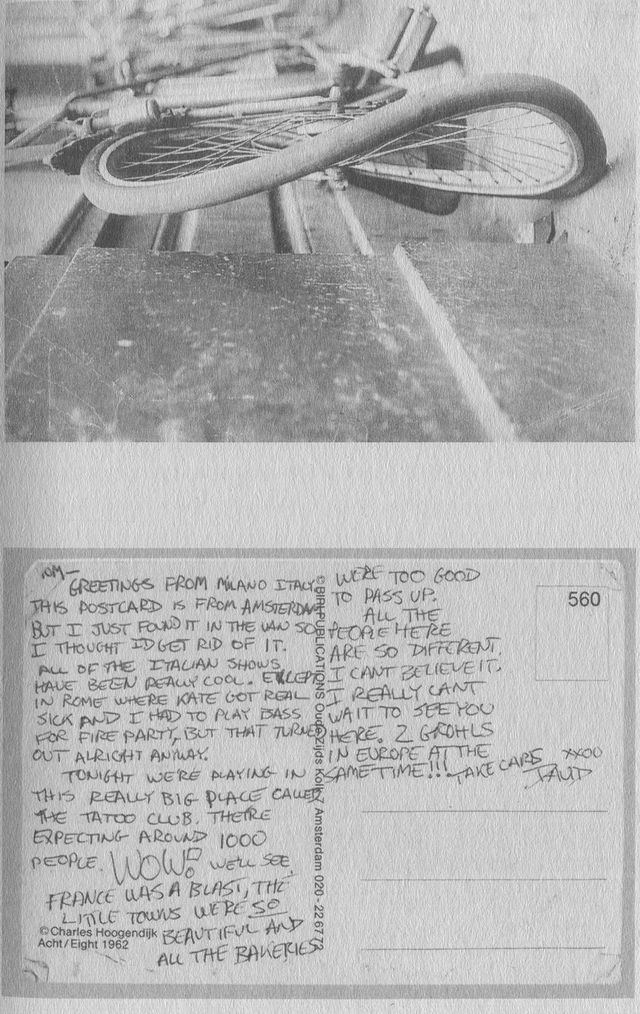 MOM—
GREETINGS FROM MILANO ITALY
THIS POSTCARD IS FROM AMSTERDAM
BUT I JUST FOUND IT IN THE VAN SO
I THOUGHT I'D GET RID OF IT.
ALL OF THE ITALIAN SHOWS
HAVE BEEN REALLY COOL. EXCEPT
IN ROME WHERE KATE GOT REAL
SICK AND I HAD TO PLAY BASS
FOR FIRE PARTY, BUT THAT TURNED
OUT ALRIGHT ANYWAY.
TONIGHT WE'RE PLAYING IN
THIS REALLY BIG PLACE CALLED
THE TATOO CLUB. THE'RE
EXPECTING AROUND 1000
PEOPLE. WOW! WE'LL SEE
FRANCE WAS A BLAST, THE
LITTLE TOWNS WERE SO
BEAUTIFUL AND
ALL THE BAKERIES
©Charles Hoogendijk
Acht/Eight 1962
© BIRI PUBLICATIONS Oude Zijds Kolk 7 Amsterdam 020-226773
WERE TOO GOOD
TO PASS UP.
ALL THE
PEOPLE HERE
ARE SO DIFFERENT.
I CANT BELIEVE IT.
I REALLY CANT
WAIT TO SEE YOU
HERE. 2 GROHLS
IN EUROPE AT THE
SAME TIME!!! TAKE CARE XXOO
DAVID
560